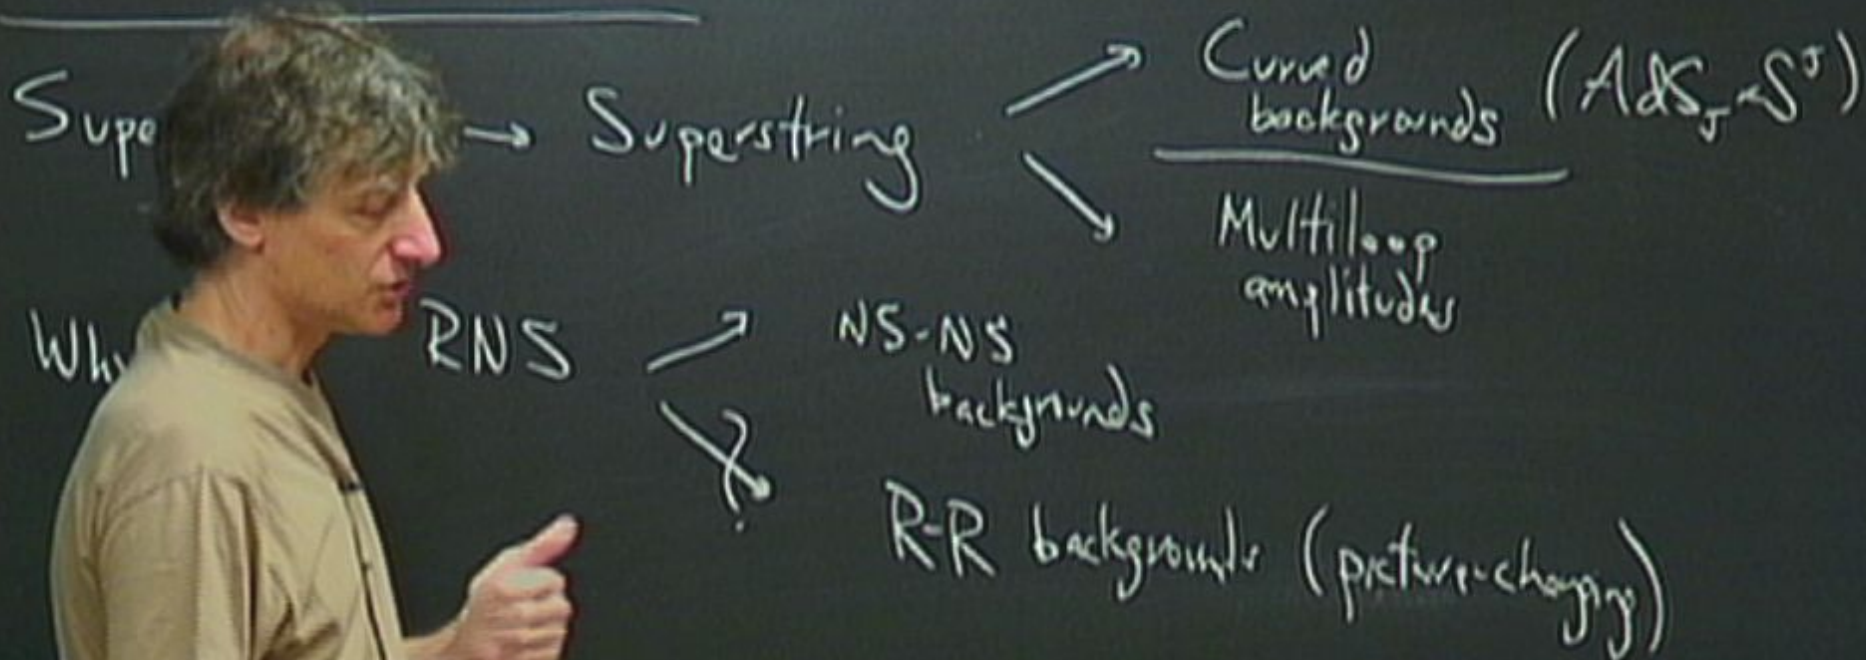 Supe → Superstring
Curved
backgrounds (AdS₅×S⁵)
Multiloop
amplitudes
Why RNS
NS-NS
backgrounds
?
R-R backgrounds (picture-changing)